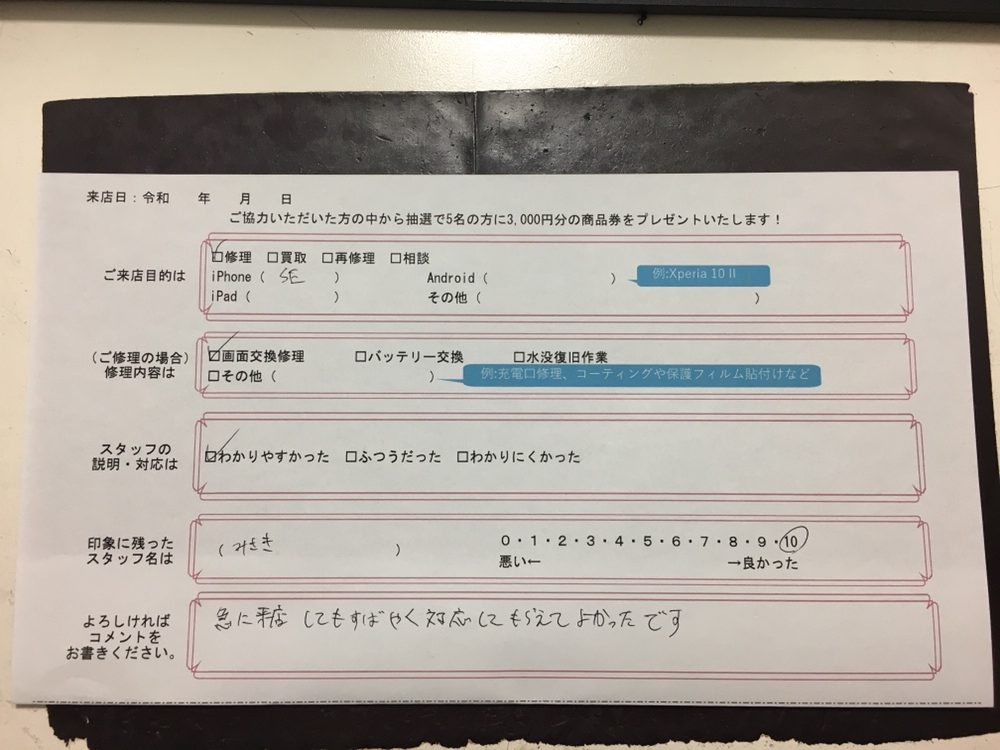 来店日：令和　　年　　月　　日
ご協力いただいた方の中から抽選で5名の方に3,000円分の商品券をプレゼントいたします！
ご来店目的は
☑修理　□買取　□再修理　□相談
iPhone（ SE ）　Android（　　）　例:Xperia 10 II
iPad（　　）　その他（　　）
（ご修理の場合）
修理内容は
☑画面交換修理　□バッテリー交換　□水没復旧作業
□その他（　　）　例:充電口修理、コーティングや保護フィルム貼付けなど
スタッフの
説明・対応は
☑わかりやすかった　□ふつうだった　□わかりにくかった
印象に残った
スタッフ名は
（ みさき ）
0・1・2・3・4・5・6・7・8・9・10
悪い←　→良かった
よろしければ
コメントを
お書きください。
急に来店してもすばやく対応してもらえてよかったです